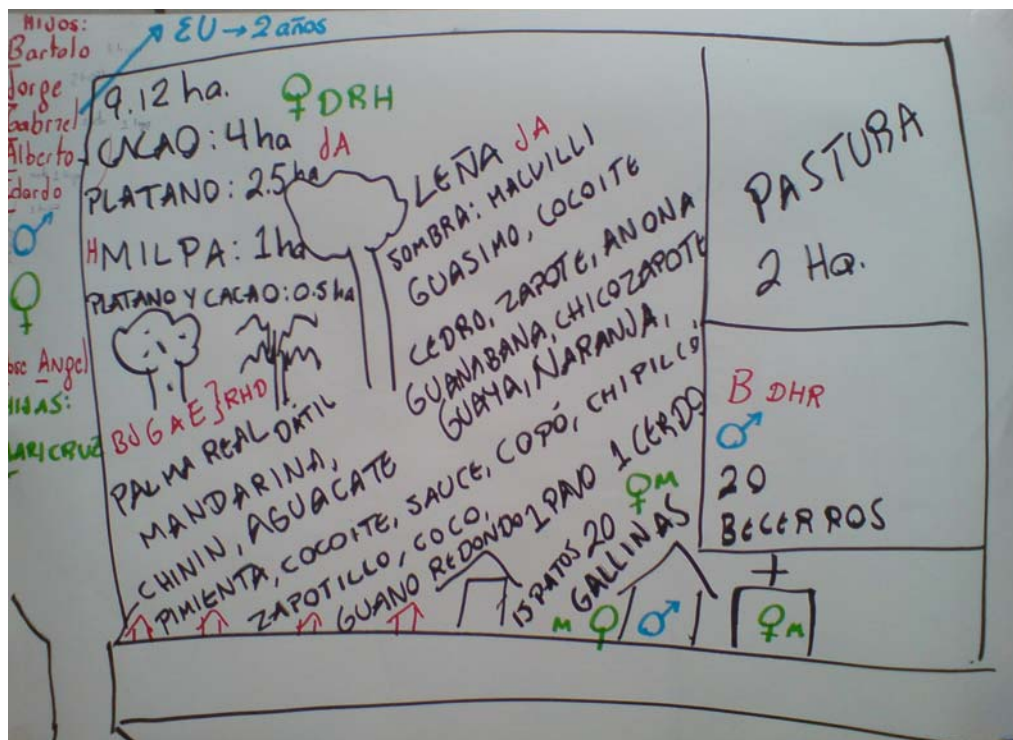 HIJOS:
Bartolo
Jorge
Gabriel
Alberto
Edardo
♂
♀
Jose Angel
HIJAS:
MARICRUZ
EU → 2 años
9.12 ha.
♀ DRH
CACAO: 4 ha
JA
PLATANO: 2.5 ha
H MILPA: 1 ha
PLATANO Y CACAO: 0.5 ha
BJGAE} RHD
LEÑA JA
SOMBRA: MACUILLI
GUASIMO, COCOITE
CEDRO, ZAPOTE, ANONA
GUANABANA, CHICOZAPOTE
GUAYA, NARANJA,
PALMA REAL DÁTIL
MANDARINA,
CHININ, AGUACATE
PIMIENTA, COCOITE, SAUCE, COPÓ, CHIPILCO,
ZAPOTILLO, COCO,
GUANO REDONDO 1 PAVO 1 CERDO
15 PATOS 20 ♀ M
GALLINAS
M ♀
♂
♀ M
PASTURA
2 Ha.
B DHR
♂
20
BECERROS